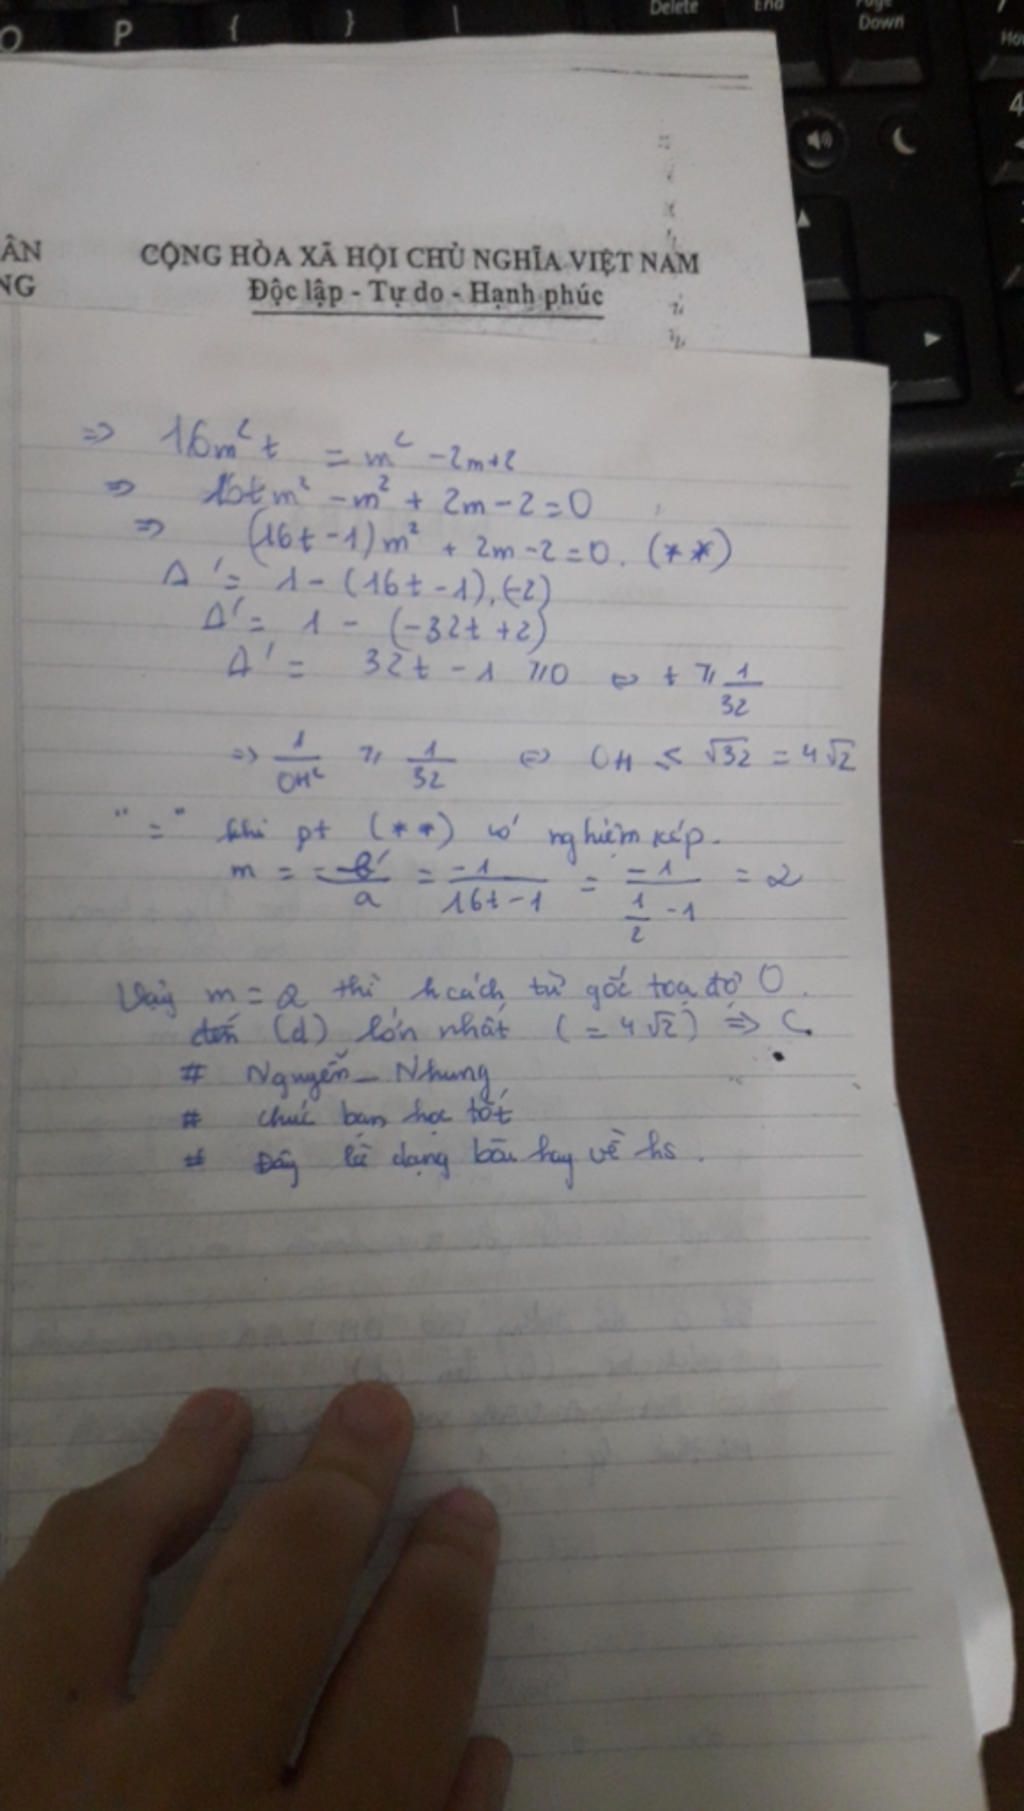 Delete End Page Down
O P { } |
4
ÂN CỘNG HÒA XÃ HỘI CHỦ NGHĨA VIỆT NAM
NG Độc lập - Tự do - Hạnh phúc
=> 16m²t = m² - 2m+2
=> 16tm² - m² + 2m - 2 = 0
=> (16t-1)m² + 2m - 2 = 0. (**)
Δ' = 1 - (16t-1).(-2)
Δ' = 1 - (-32t+2)
Δ' = 32t - 1 ≥ 0 <=> t ≥ 1/32
=> 1/OH² ≥ 1/32 <=> OH ≤ √32 = 4√2
"=" khi pt (**) có nghiệm kép.
m = -b'/a = -1/(16t-1) = -1/(1/2 - 1) = 2
Vậy m = 2 thì k cách từ gốc toạ độ O
đến (d) lớn nhất (= 4√2) => C.
# Nguyễn_Nhung
# chúc bạn học tốt
# Đây là dạng bài hay về hs.